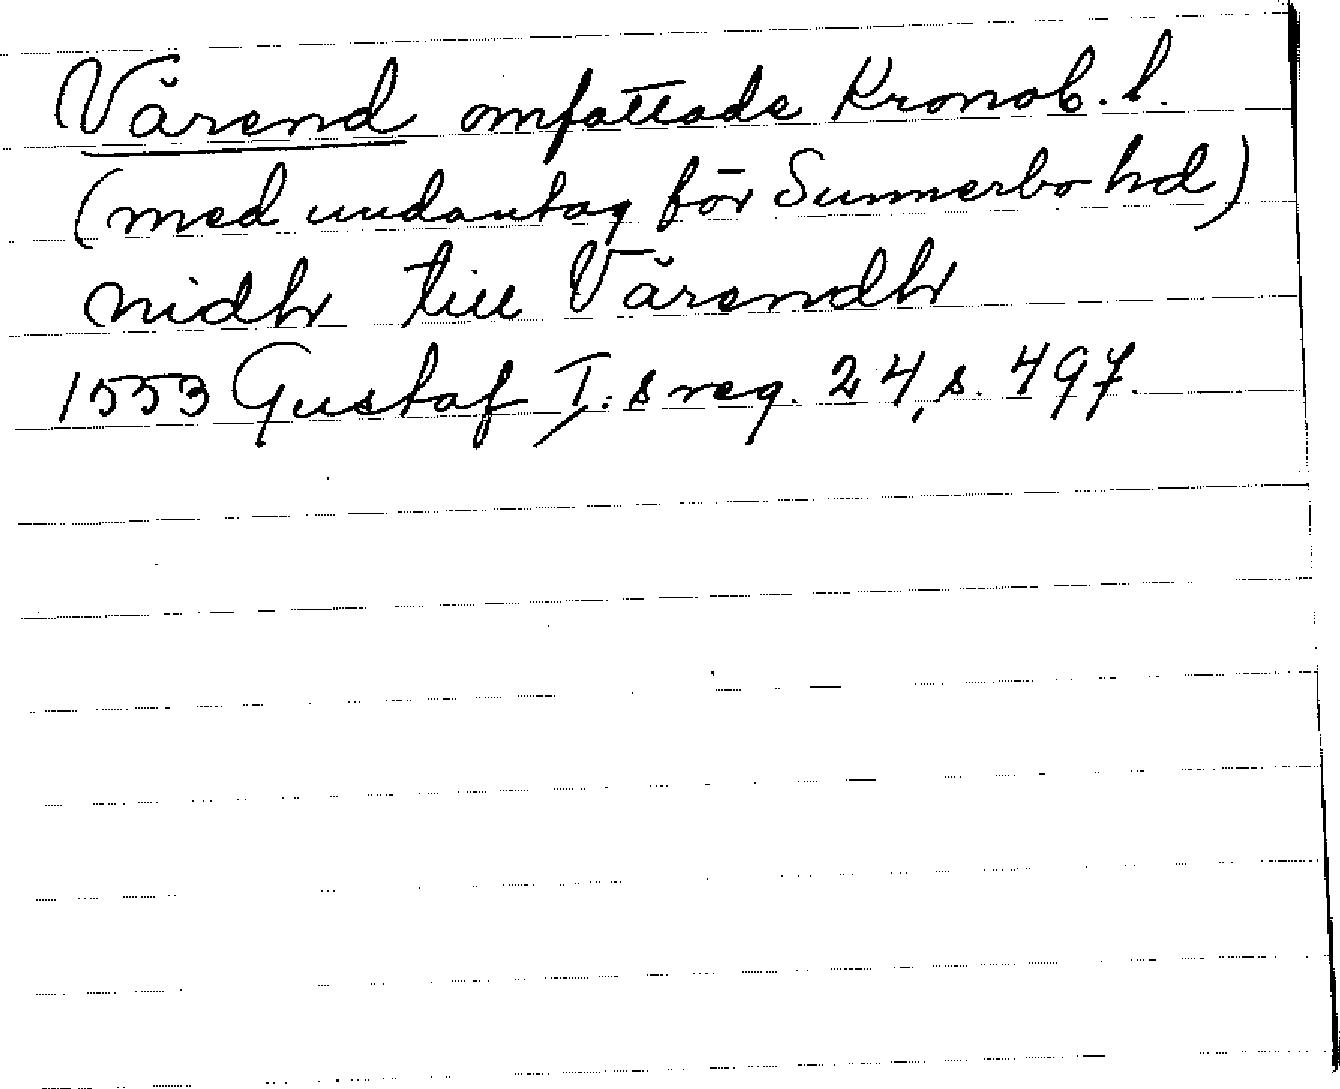 Värend omfattade Kronob. l.
(med undantag för Sunnerbo hd)
nidhr till Värendhr
1553 Gustaf I:s reg. 24, s. 497.